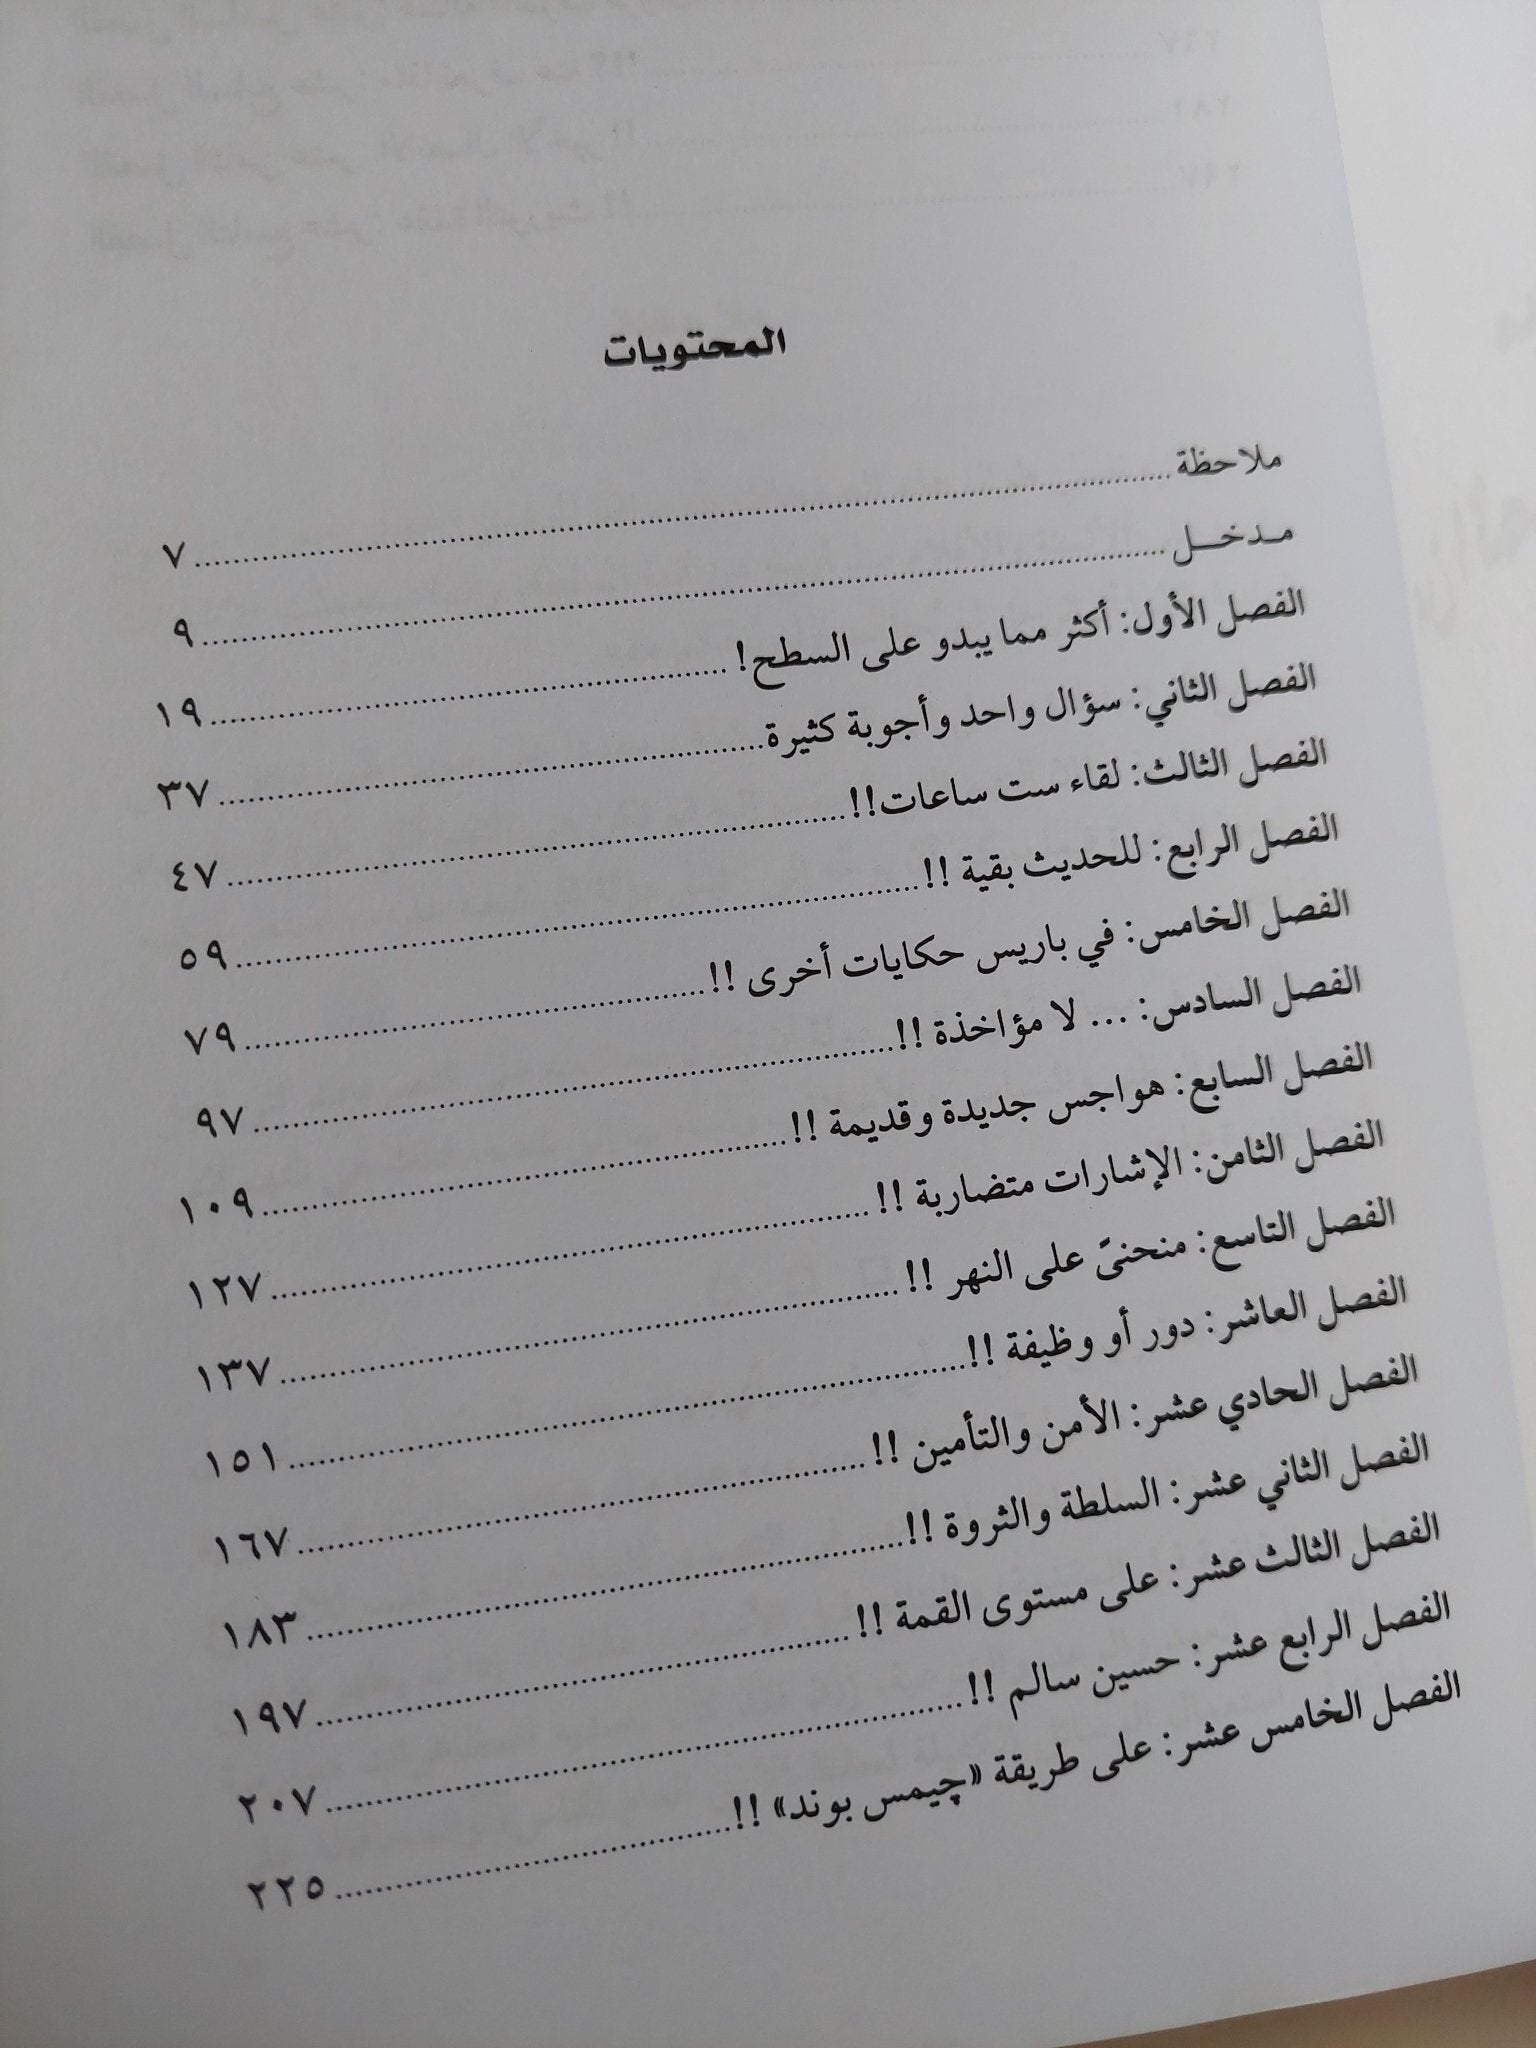 المحتويات
ملاحظة ................ ٧
مـدخـــل ................ ٩
الفصل الأول: أكثر مما يبدو على السطح! ................ ١٩
الفصل الثاني: سؤال واحد وأجوبة كثيرة ................ ٣٧
الفصل الثالث: لقاء ست ساعات!! ................ ٤٧
الفصل الرابع: للحديث بقية !! ................ ٥٩
الفصل الخامس: في باريس حكايات أخرى !! ................ ٧٩
الفصل السادس: ... لا مؤاخذة !! ................ ٩٧
الفصل السابع: هواجس جديدة وقديمة !! ................ ١٠٩
الفصل الثامن: الإشارات متضاربة !! ................ ١٢٧
الفصل التاسع: منحنىً على النهر !! ................ ١٣٧
الفصل العاشر: دور أو وظيفة !! ................ ١٥١
الفصل الحادي عشر: الأمن والتأمين !! ................ ١٦٧
الفصل الثاني عشر: السلطة والثروة !! ................ ١٨٣
الفصل الثالث عشر: على مستوى القمة !! ................ ١٩٧
الفصل الرابع عشر: حسين سالم !! ................ ٢٠٧
الفصل الخامس عشر: على طريقة «چيمس بوند» !! ................ ٢٢٥